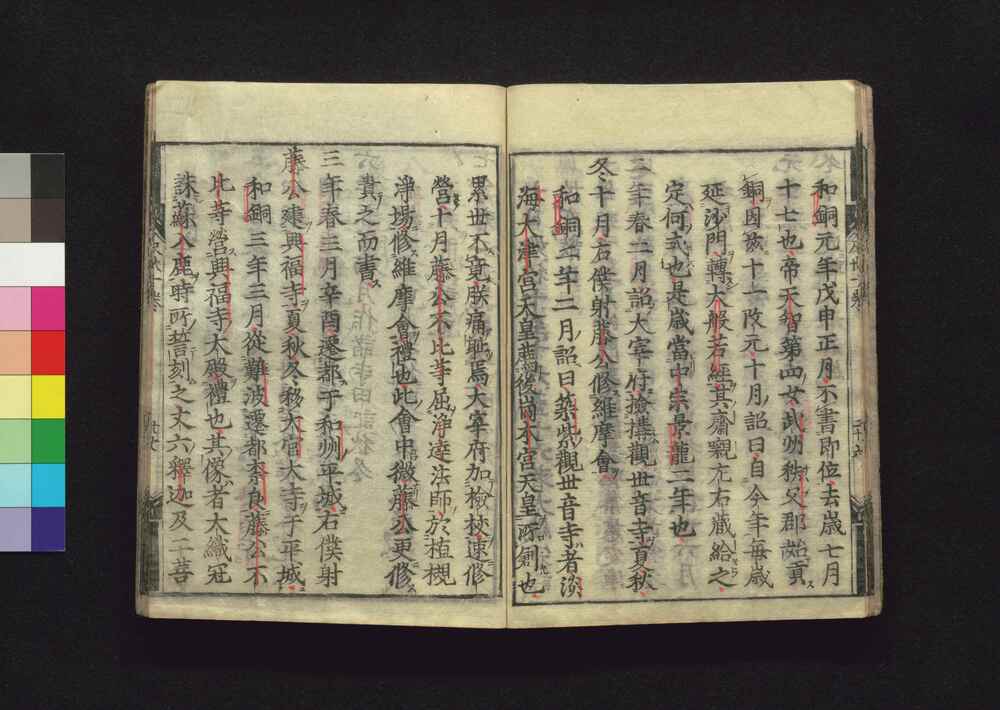 和銅元年戊申正月不書即位去歳七月
十七也帝天智第四女武州秩父郡始貢
銅因茲十一改元十月詔曰自今年毎歳
延沙門轉大般若經其齋襯亢右藏給之
定何式也是歳當中宗景龍二年也
三年春二月詔大宰府撿搆觀世音寺夏秋
冬十月右僕射藤公修維摩會
和銅二年二月詔曰築紫觀世音寺者淡
海大津宮天皇爲後岡本宮天皇所創也
累世不寛朕痛耻焉大宰府加檢校速修
營十月藤公不比等屈淨達法師於植槻
淨場修維摩會禮也此會中微藤公更修
貴之而書
三年春三月辛酉遷都于和州平城右僕射
藤公建興福寺夏秋冬移大官大寺于平城
和銅三年三月從難波遷都奈良藤公不
比等營興福寺大殿禮也其像者大織冠
誅蘇入鹿時所誓刻之丈六釋迦及二菩